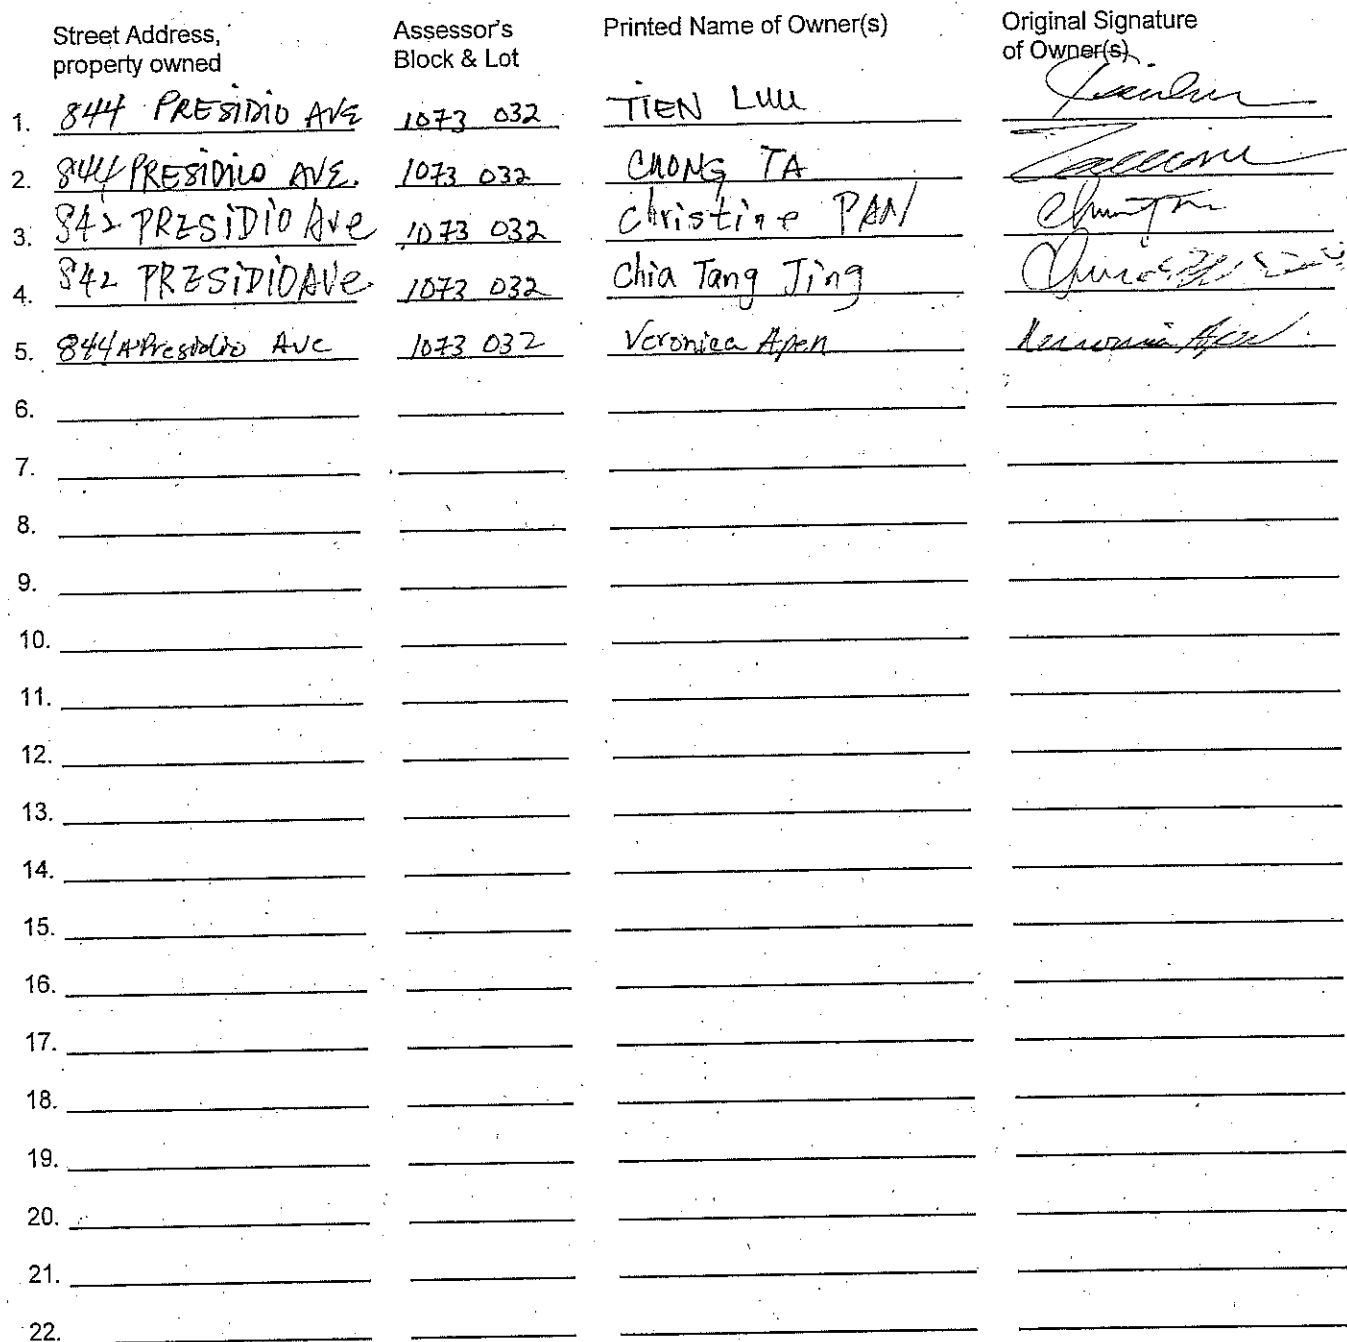 Street Address, Assessor's Printed Name of Owner(s) Original Signature
property owned Block & Lot of Owner(s)
1. 844 PRESIDIO AVE 1073 032 TIEN LUU
2. 844 PRESIDIO AVE. 1073 032 CHONG TA
3. 842 PRESIDIO Ave 1073 032 Christine PAN
4. 842 PRESIDIO AVe. 1073 032 Chia Tang Jing
5. 844A Presidio Ave 1073 032 Veronica Apen
6.
7.
8.
9.
10.
11.
12.
13.
14.
15.
16.
17.
18.
19.
20.
21.
22.